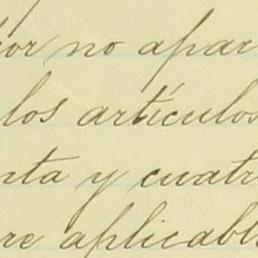 por no apar
los artículos
nta y cuatr
re aplicabl